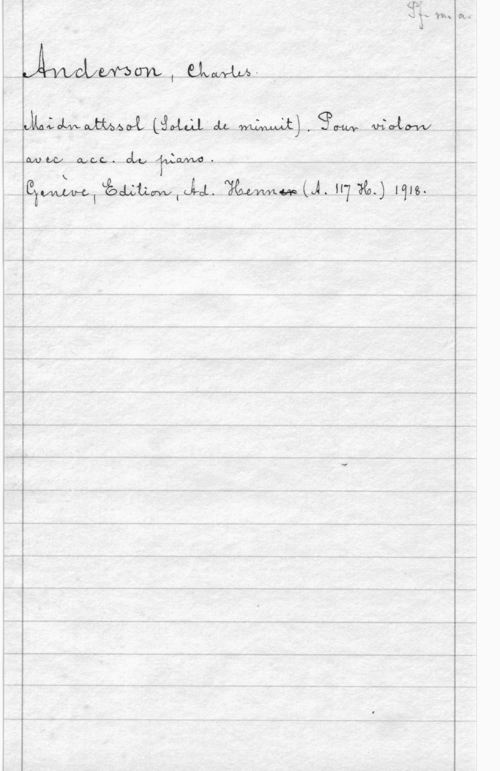 Pf. m. a.
Anderson, Charles.
Midnattssol (Soleil de minuit). Pour violon
avec acc. de piano.
Genève, Edition, Ad. Henn (A. 117 H.) 1918.